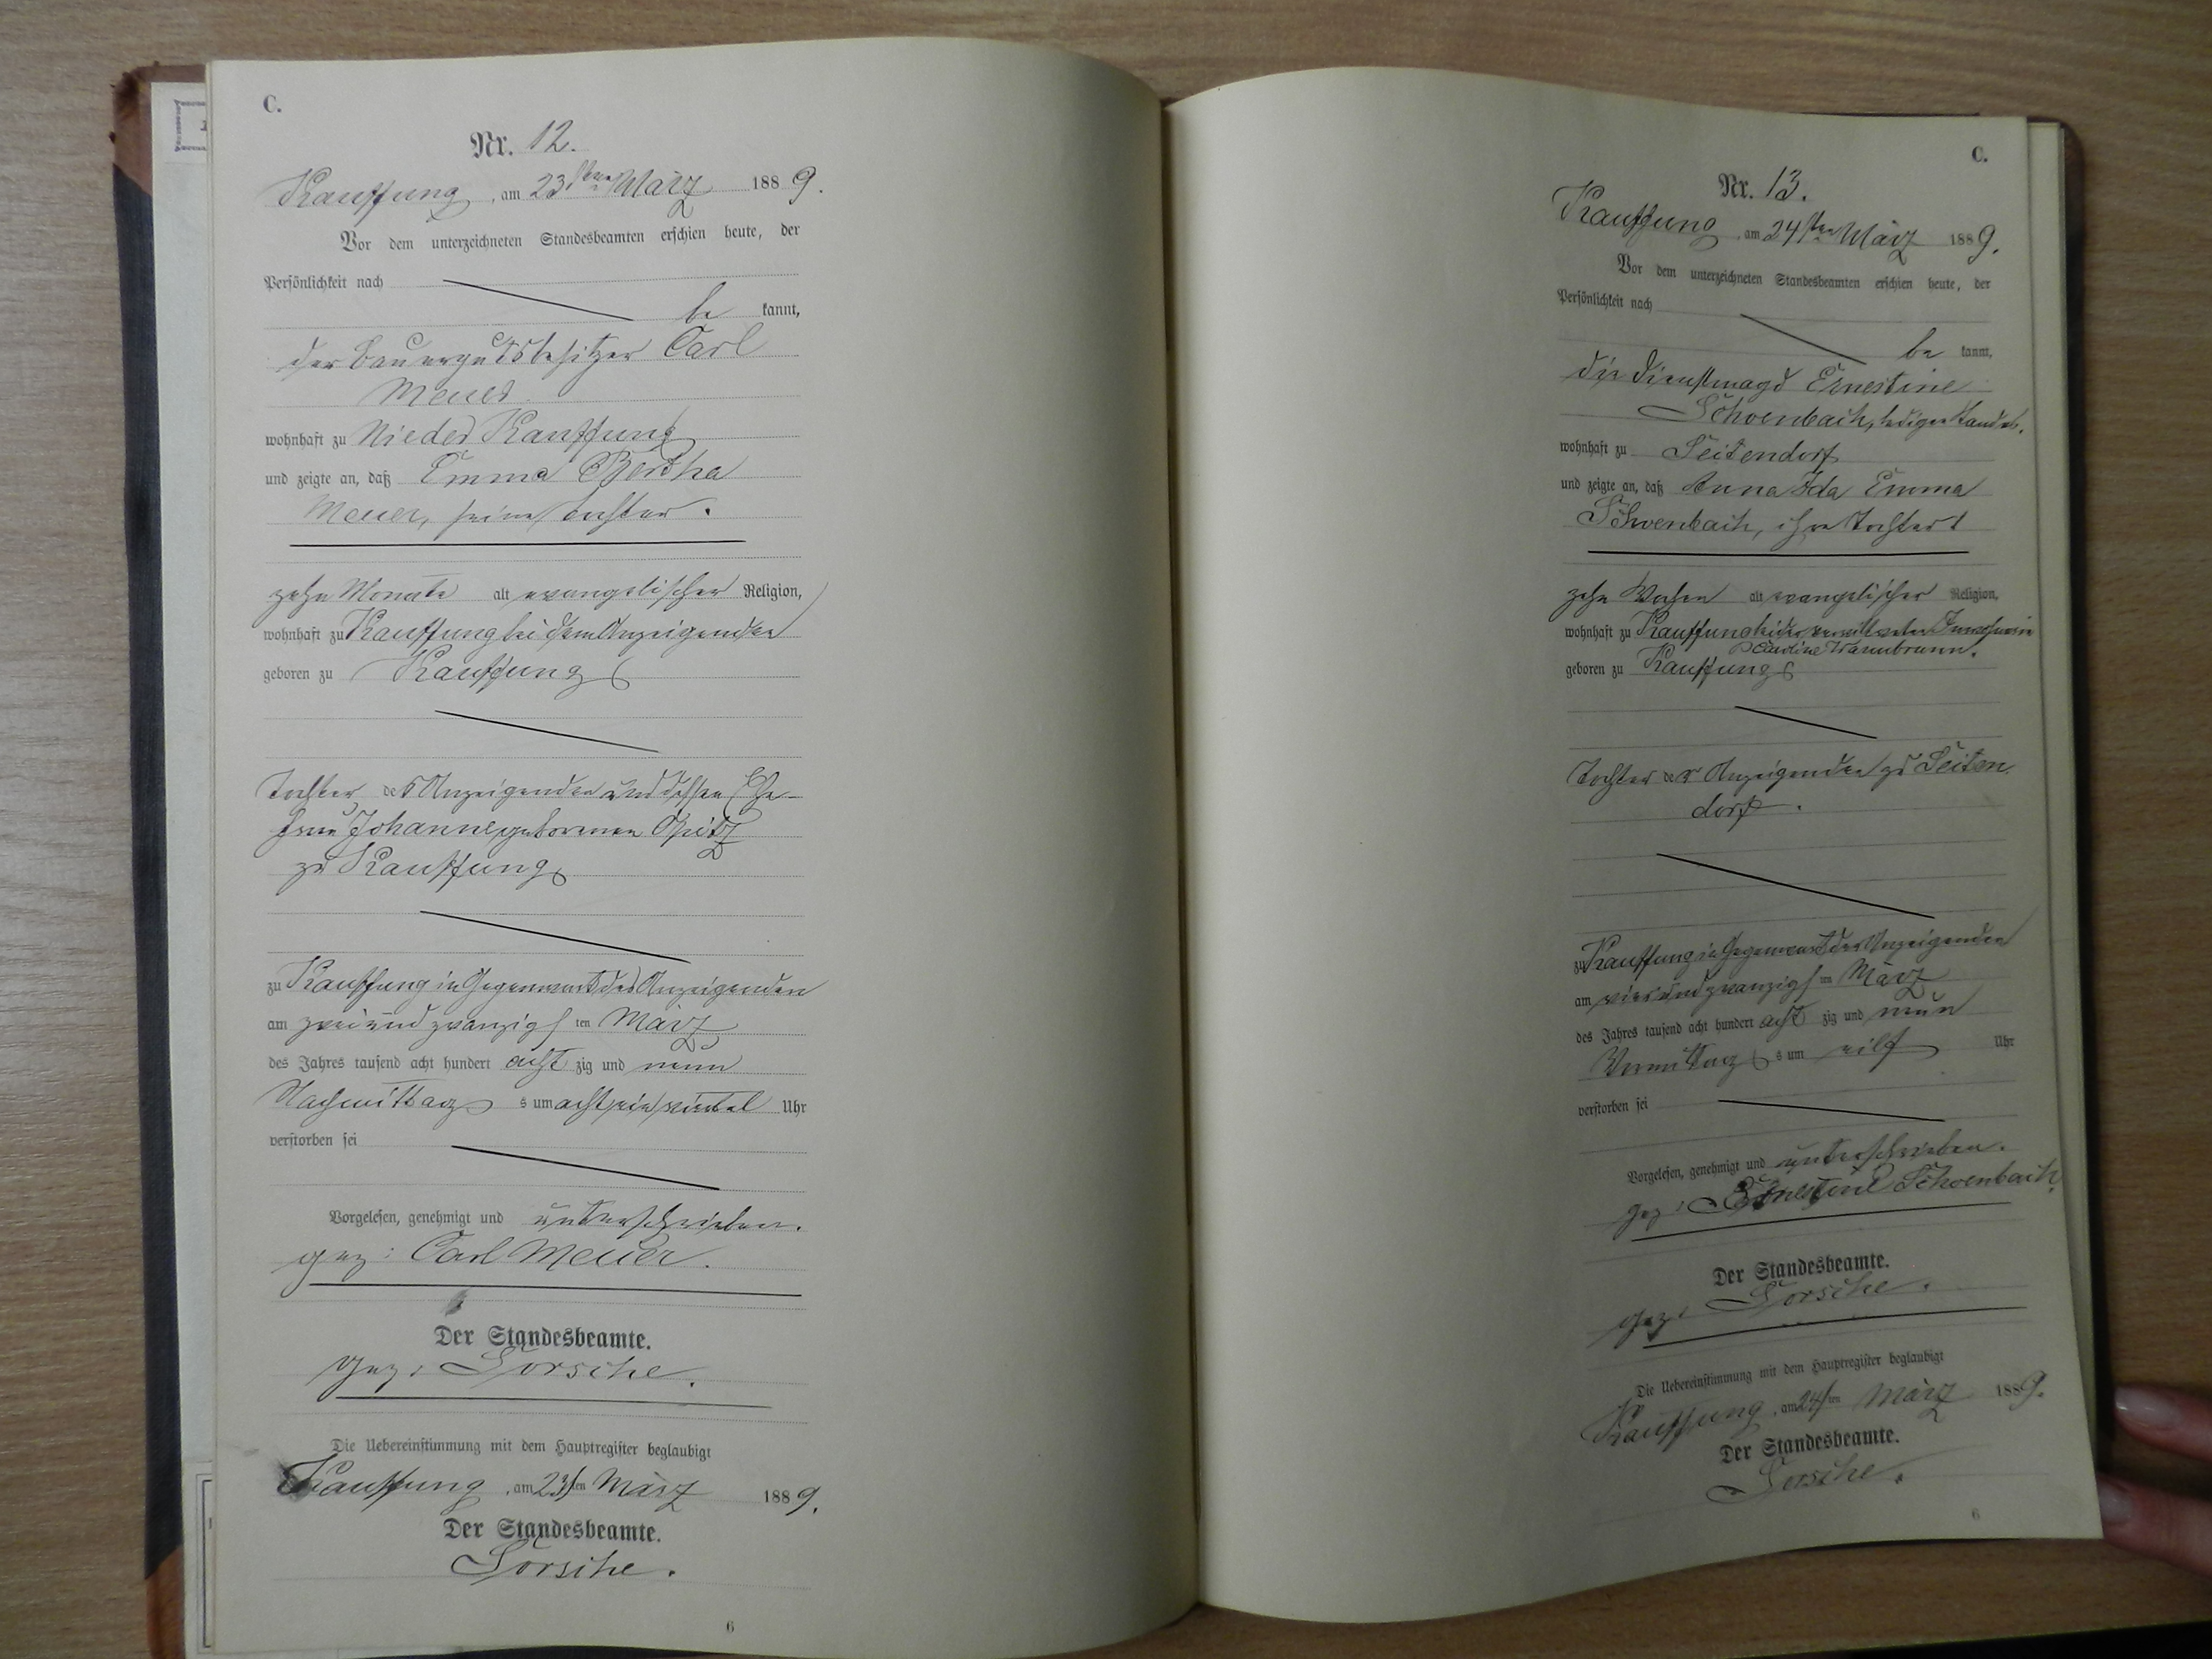 C.
Nr. 12.
Kauffung, am 23sten März 1889.
Vor dem unterzeichneten Standesbeamten erschien heute, der
Persönlichkeit nach
be kannt,
der Bauergutsbesitzer Carl
Meuer
wohnhaft zu Nieder Kauffung
und zeigte an, daß Emma Bertha
Meuer, seine Tochter.
zehn Monate alt evangelischer Religion,
wohnhaft zu Kauffung bei dem Anzeigenden
geboren zu Kauffung
Tochter des Anzeigenden und dessen Ehe-
frau Johanne geborenen Opitz
zu Kauffung
zu Kauffung in Gegenwart des Anzeigenden
am zweiundzwanzigsten März
des Jahres tausend acht hundert acht zig und neun
Nachmittags um acht ein viertel Uhr
verstorben sei
Vorgelesen, genehmigt und unterschrieben.
gez: Carl Meuer.
Der Standesbeamte.
gez: Sorsche.
Die Uebereinstimmung mit dem Hauptregister beglaubigt
Kauffung, am 23sten März 1889.
Der Standesbeamte.
Sorsche.
6
C.
Nr. 13.
Kauffung, am 24sten März 1889.
Vor dem unterzeichneten Standesbeamten erschien heute, der
Persönlichkeit nach
be kannt,
die Dienstmagd Ernestine
Schoenbach, ledigen Standes.
wohnhaft zu Seitendorf
und zeigte an, daß Anna Ida Emma
Schoenbach, ihre Tochter
zehn Wochen alt evangelischer Religion,
wohnhaft zu Kauffung bei der verwittweten
Caroline Warmbrunn.
geboren zu Kauffung
Tochter der Anzeigenden zu Seiten
dorf.
zu Kauffung in Gegenwart der Anzeigenden
am vierundzwanzigsten März
des Jahres tausend acht hundert acht zig und neun
Vormittags um eilf Uhr
verstorben sei
Vorgelesen, genehmigt und unterschrieben.
gez: Ernestine Schoenbach.
Der Standesbeamte.
gez: Sorsche.
Die Uebereinstimmung mit dem Hauptregister beglaubigt
Kauffung, am 24sten März 1889.
Der Standesbeamte.
Sorsche.
6